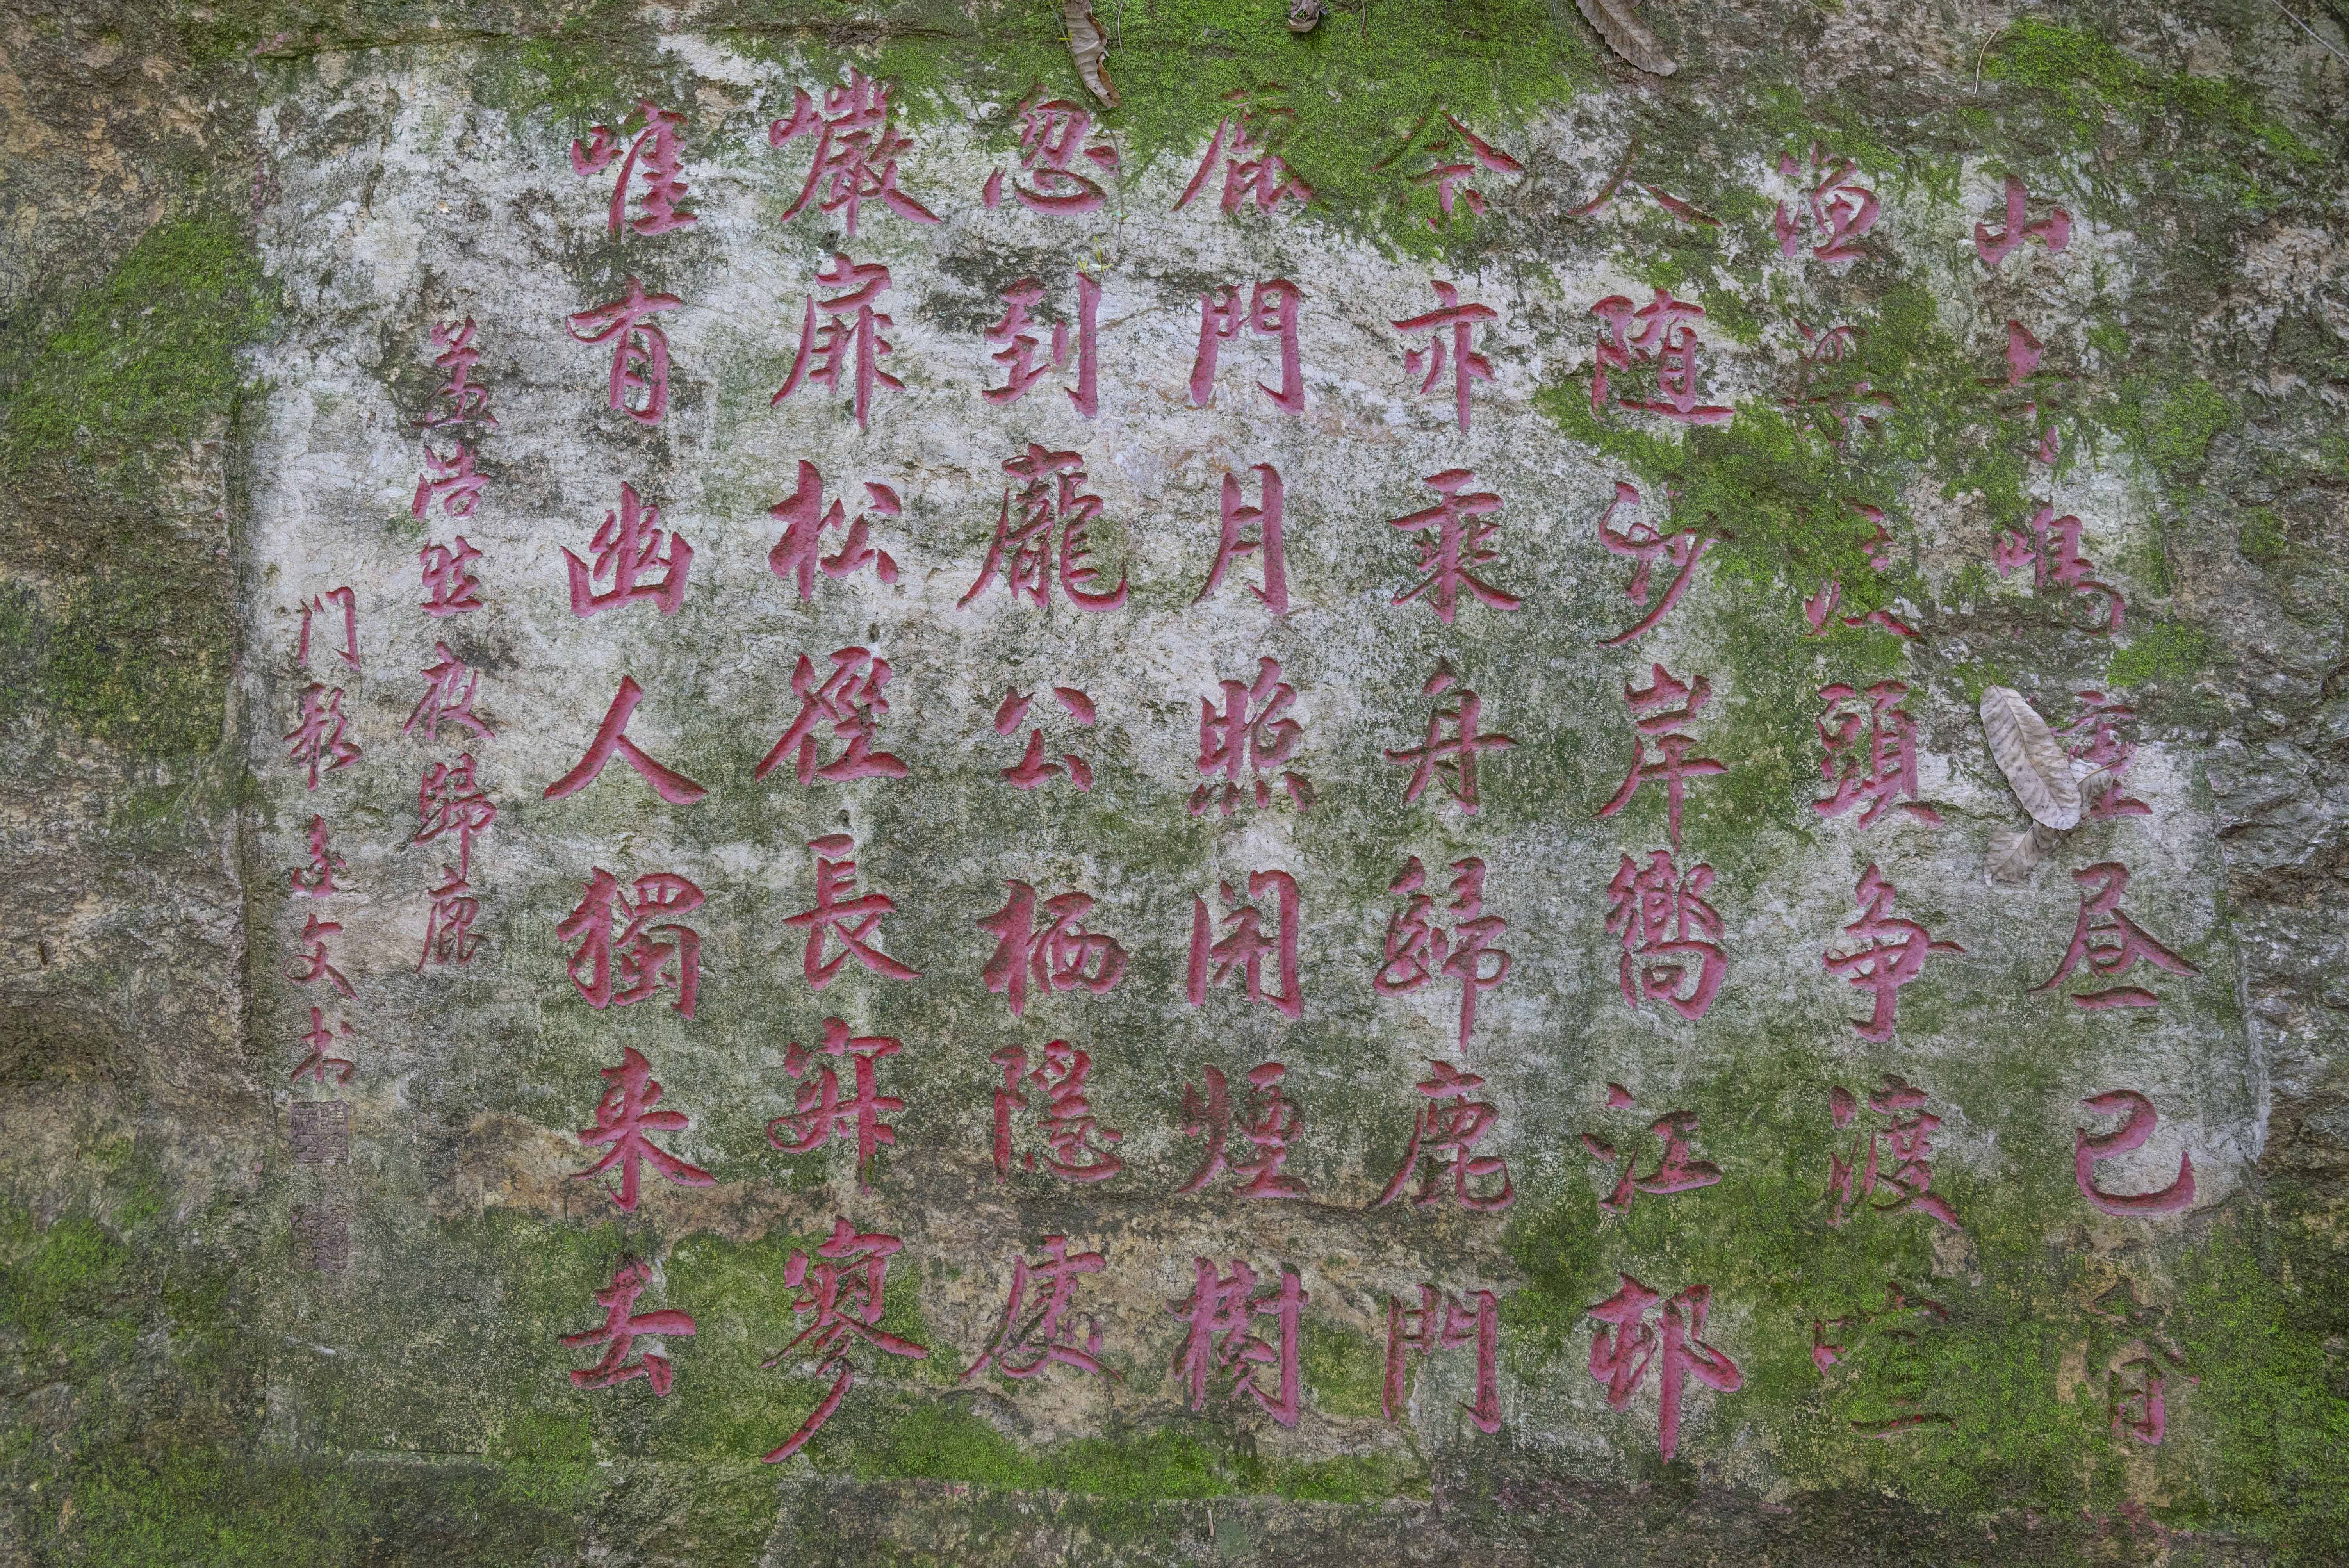 山寺鳴鐘昼已昏
渔梁渡頭争渡喧
人随沙岸嚮江邨
余亦乘舟歸鹿門
鹿門月照開煙樹
忽到龐公栖隱處
巖扉松徑長寂寥
唯有幽人獨来去
孟浩然夜歸鹿
门歌 文书